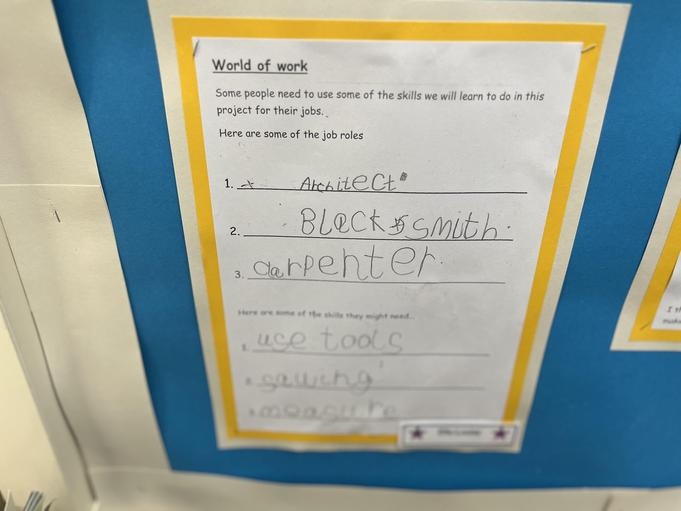 World of work
Some people need to use some of the skills we will learn to do in this
project for their jobs.
Here are some of the job roles
1. Architect
2. Blacksmith.
3. carpenter.
Here are some of the skills they might need..
1. use tools
2. sawing
3. measure
I th
make